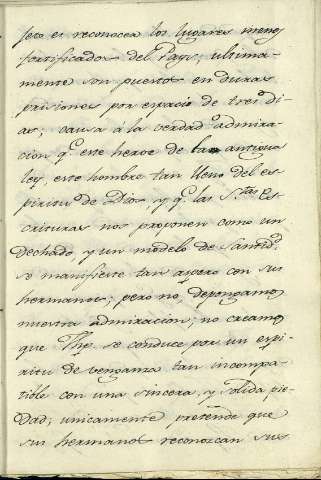 jeto es reconocer los lugares menos
fortificados del Pays; ultima-
mente son puestos en duras
prisiones por espacio de tres di-
as; causa á la verdad admira-
cion q.e este heroe de la antigua
ley, este hombre tan lleno del es-
piritu de Dios, y q.e las S.tas Es-
crituras nos proponen como un
dechado, y un modelo de Santid.d
se manifieste tan aspero con sus
hermanos; pero no, depongamos
nuestra admiracion; no creamos
que Jhp. se conduce por un espi-
ritu de venganza tan incompa-
tible con una sincera, y solida pie-
dad; unicamente pretende que
sus hermanos reconozcan sus